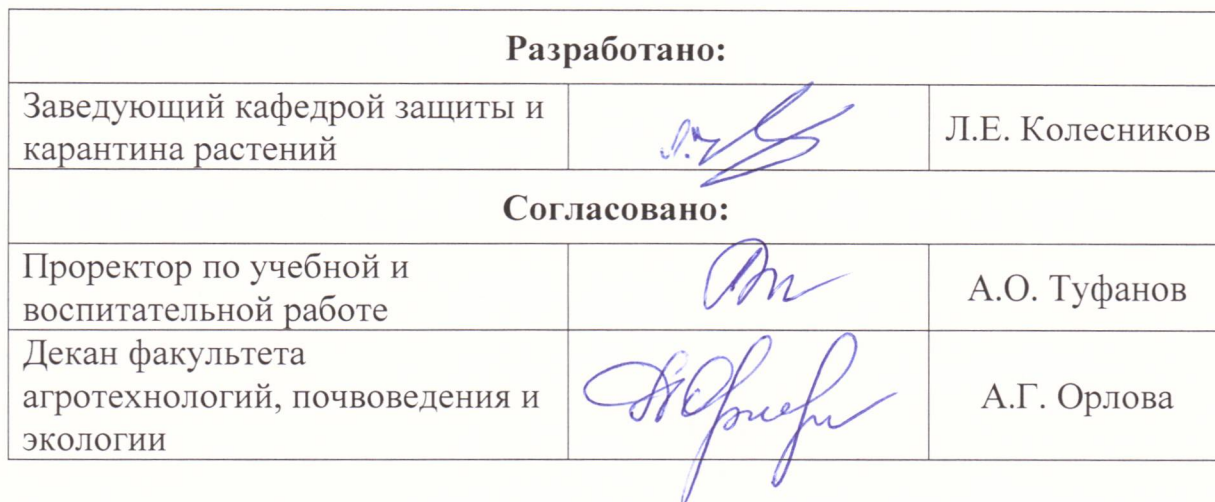 Разработано:
Заведующий кафедрой защиты и
карантина растений
Л.Е. Колесников
Согласовано:
Проректор по учебной и
воспитательной работе
А.О. Туфанов
Декан факультета
агротехнологий, почвоведения и
экологии
А.Г. Орлова